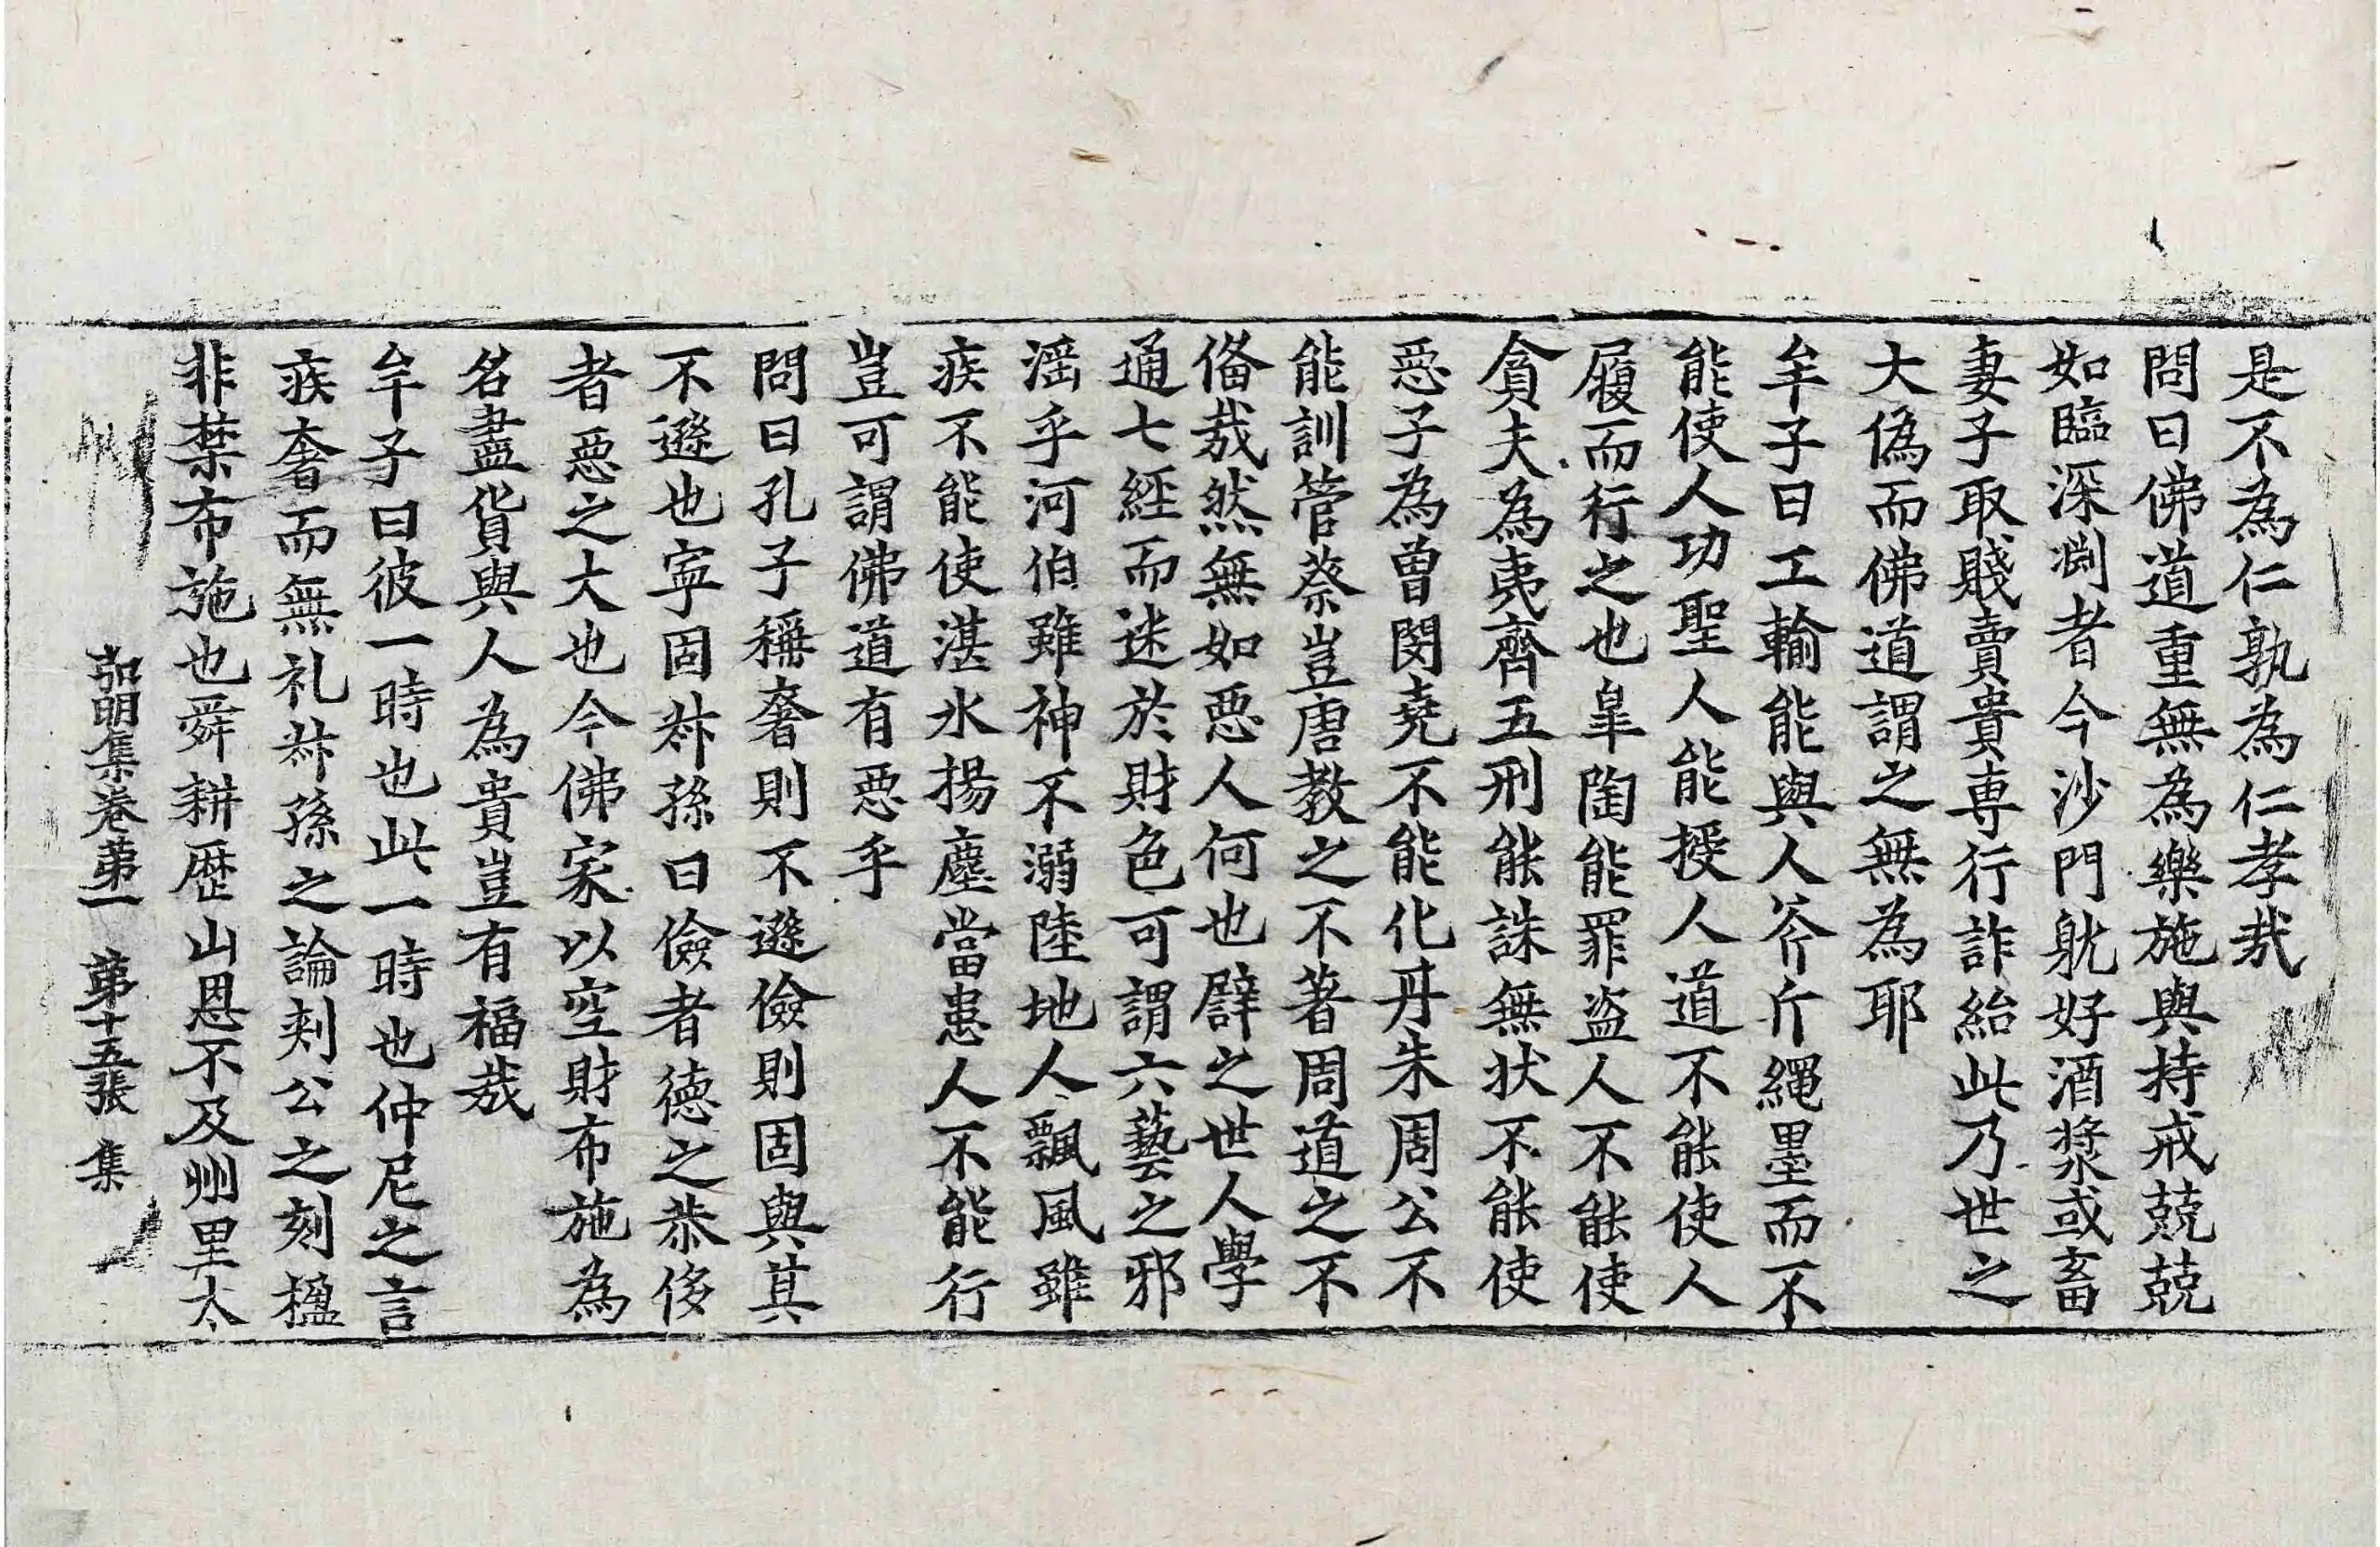 是不為仁孰為仁孝哉
問曰佛道重無為樂施與持戒兢兢
如臨深渕者今沙門躭好酒漿或畜
妻子取賤賣貴専行詐紿此乃世之
大偽而佛道謂之無為耶
牟子曰工輸能與人斧斤繩墨而不
能使人功聖人能授人道不能使人
履而行之也皐陶能罪盗人不能使
貪夫為夷齊五刑能誅無状不能使
惡子為曾閔堯不能化丹朱周公不
能訓管蔡豈唐教之不著周道之不
俻哉然無如惡人何也譬之世人學
通七經而迷於財色可謂六藝之邪
滛乎河伯雖神不溺陸地人飄風雖
疾不能使湛水揚塵當患人不能行
豈可謂佛道有惡乎
問曰孔子稱奢則不遜儉則固與其
不遜也寜固幷孫曰儉者徳之恭侈
者惡之大也今佛家以空財布施為
名盡貨與人為貴豈有福哉
牟子曰彼一時也此一時也仲尼之言
疾奢而無礼幷孫之論刾公之刻楹
非禁布施也舜耕歴山恩不及州里太
弘明集卷第一　第十五張　集